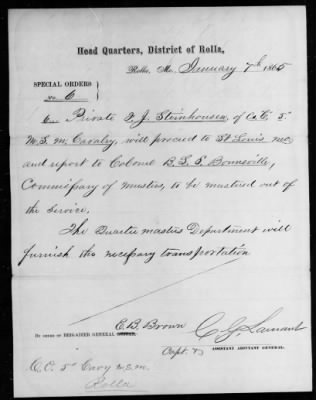 Head Quarters, District of Rolla,
Rolla, Mo. January 7th 1865
SPECIAL ORDERS
No. 6
Private F. J. Steinhousen, of Co. E, 5"
M. S. M. Cavalry, will proceed to St Louis Mo
and report to Colonel B. L. E. Bonneville,
Commissary of Musters, to be mustered out of
the Service.
The Quarter masters Department will
furnish the necessary transportation
By order of BRIGADIER GENERAL E. B. Brown
C. G. Laurant
Capt. & ASSISTANT ADJUTANT GENERAL.
C.O. 5" Cavy M.S.M.
Rolla